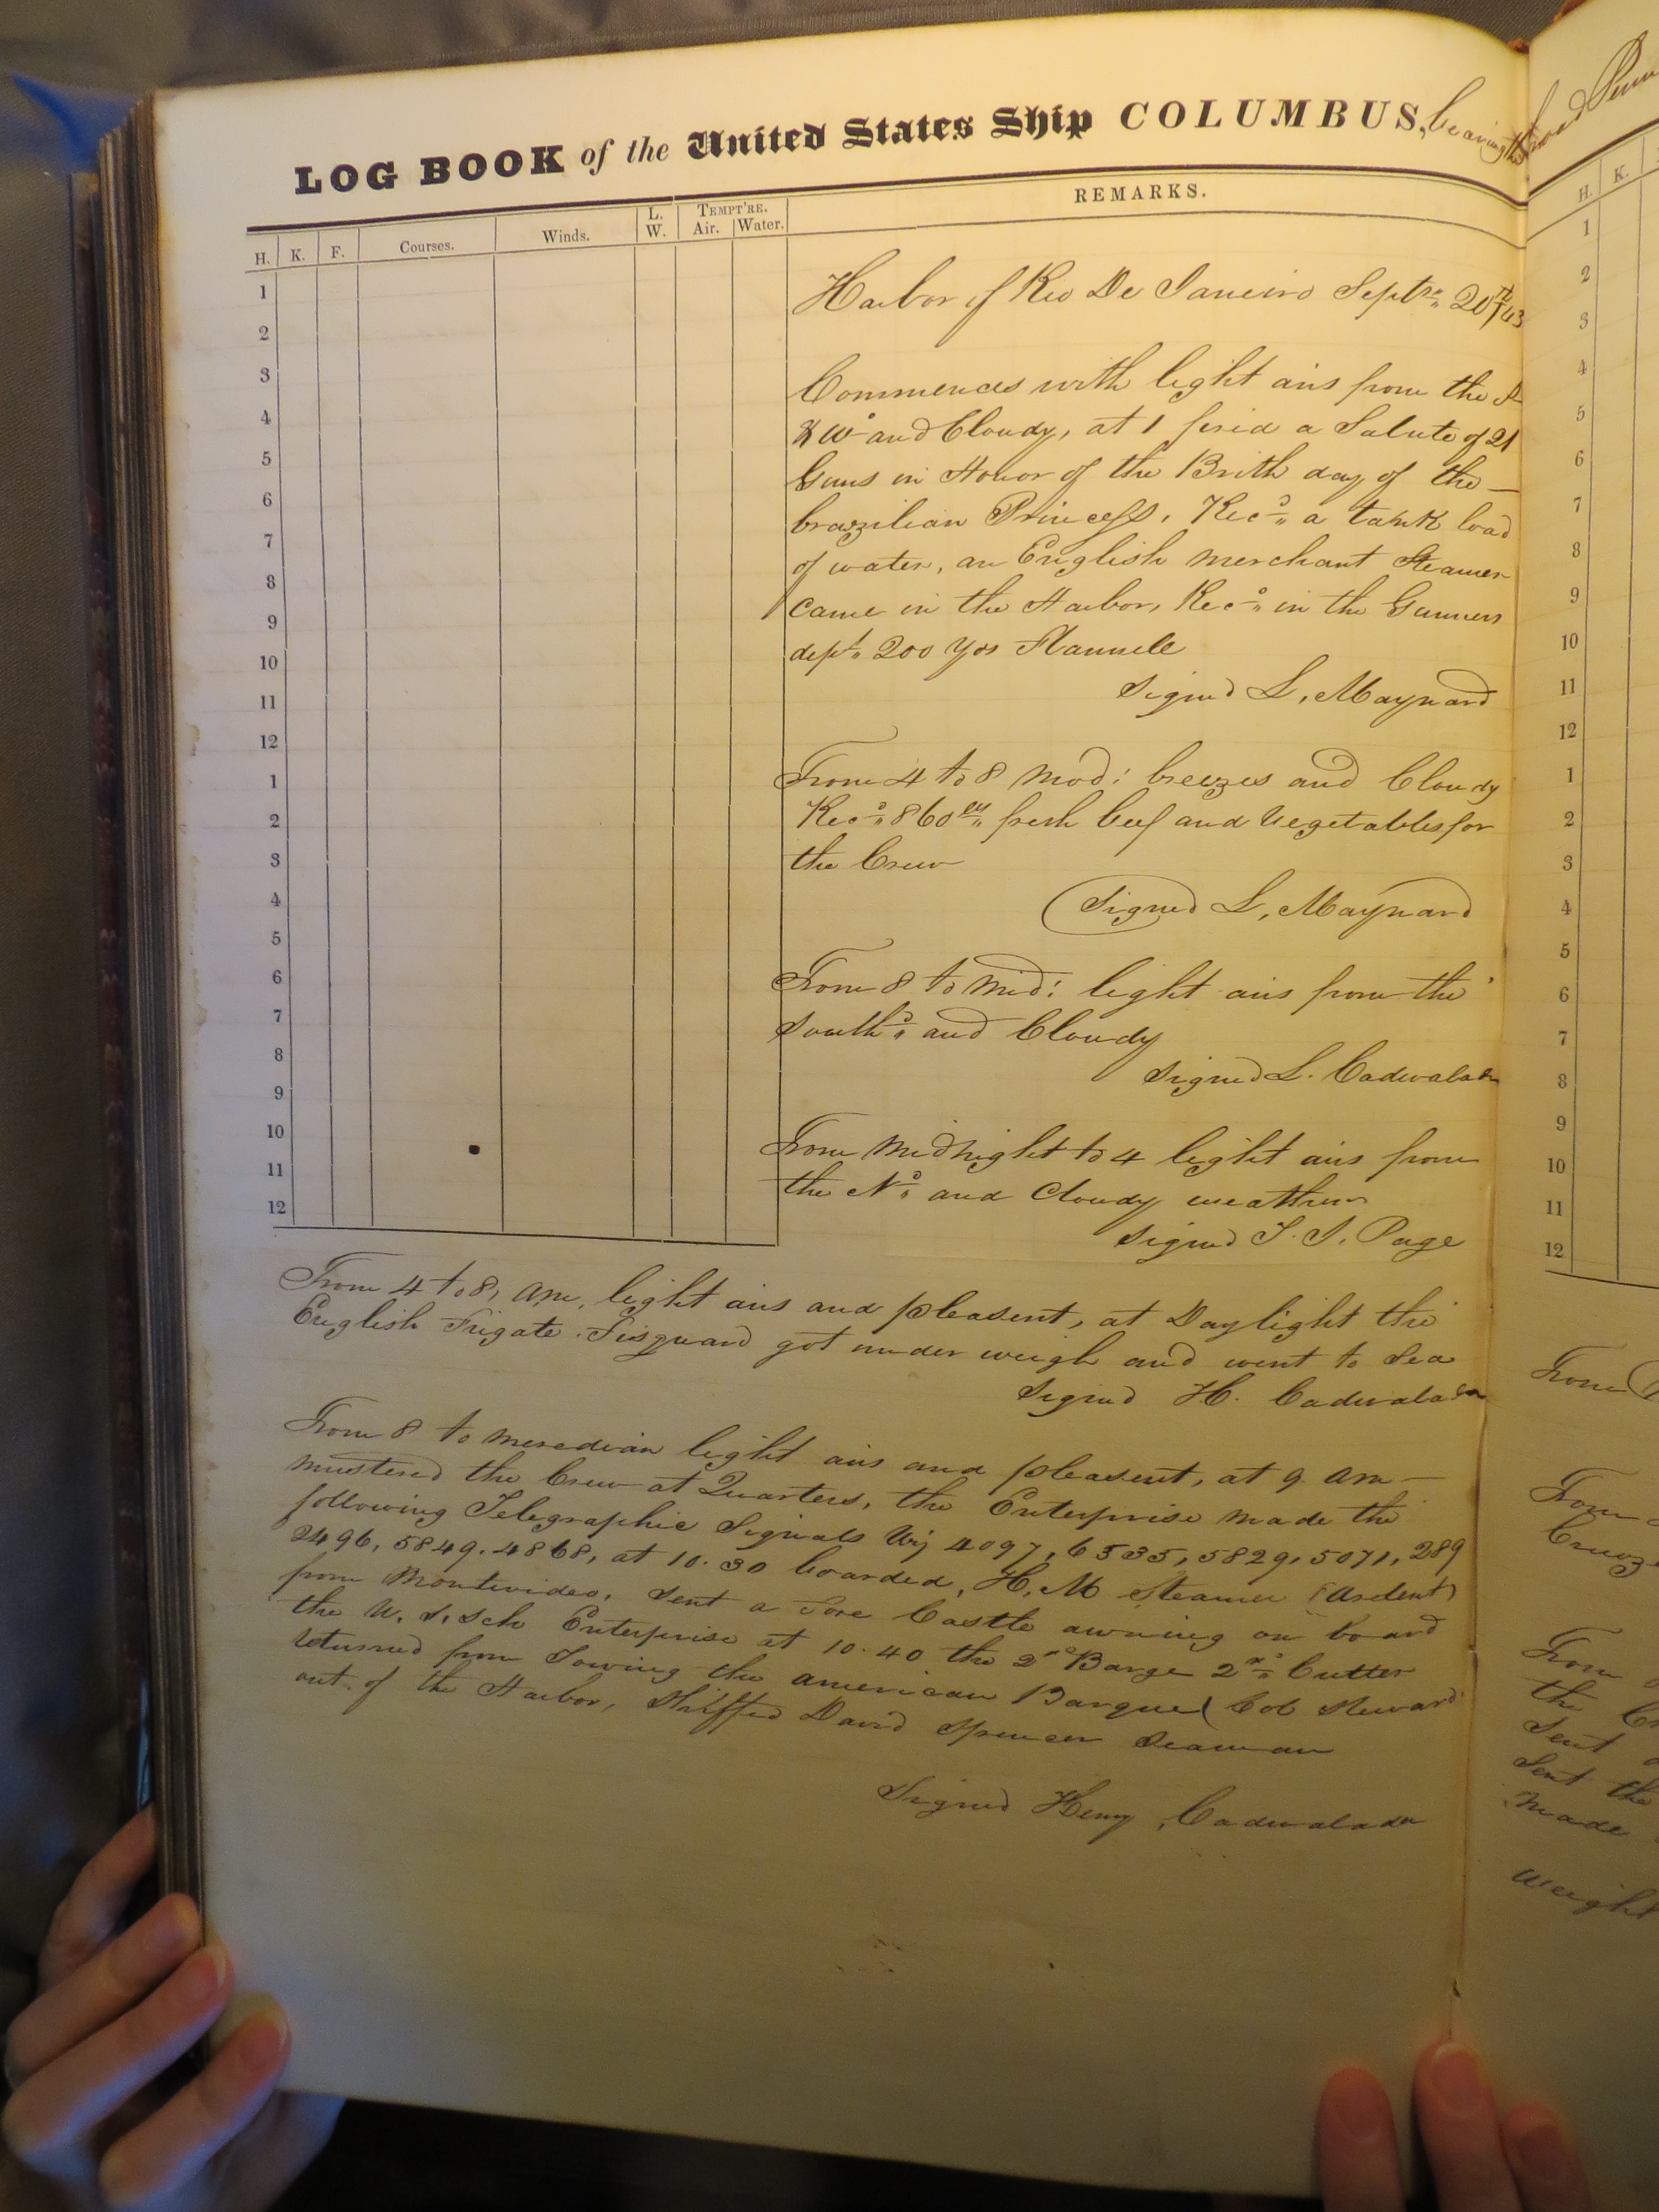 LOG BOOK of the United States Ship COLUMBUS, bearing the
H. K. F. Courses. Winds. L. W. TEMPT'RE. Air. Water. REMARKS.
1
2
3
4
5
6
7
8
9
10
11
12
1
2
3
4
5
6
7
8
9
10
11
12
Harbor of Rio De Janeiro Septr 20th /43
Commences with light airs from the S
& Wd and Cloudy, at 1 fired a Salute of 21
Guns in Honor of the Brith day of the —
brazilian Princess, Recd a tank load
of water, an English merchant Steamer
came in the Harbor, Recd in the Gunners
dept 200 yds Flannele
Signed L, Maynard
From 4 to 8 Mod: breezes and Cloudy
Recd 860 fresh beef and Vegetables for
the Crew
(Signed L, Maynard
From 8 to Mid: light airs from the
Southd and Cloudy
Signed L. Cadwalader
From Midnight to 4 light airs from
the Nd and Cloudy weather
Signed T. J. Page
From 4 to 8, am, light airs and pleasent, at Daylight the
English Frigate Fisguard got under weigh and went to Sea
Signed H. Cadwalader
From 8 to meredian light airs and pleasent, at 9 am —
mustered the Crew at Quarters, the Enterprise made the
following Telegraphic Signals Viz 4097, 6535, 5829, 5071, 289
2496, 5849. 4868, at 10. 30 boarded, H, M Steamer (Ardent)
from Montevideo, sent a Fore Castle awning on board
the U. S. Sch Enterprise at 10. 40 the 2d Barge 2nd Cutter
returned from Towing the american Barque (Cob Steward
out of the Harbor, Shipped David Spencer Seaman
Signed Henry Cadwalader
H. K.
1
2
3
4
5
6
7
8
9
10
11
12
1
2
3
4
5
6
7
8
9
10
11
12
From
From
From
the
Sent
Sent the
made
weight